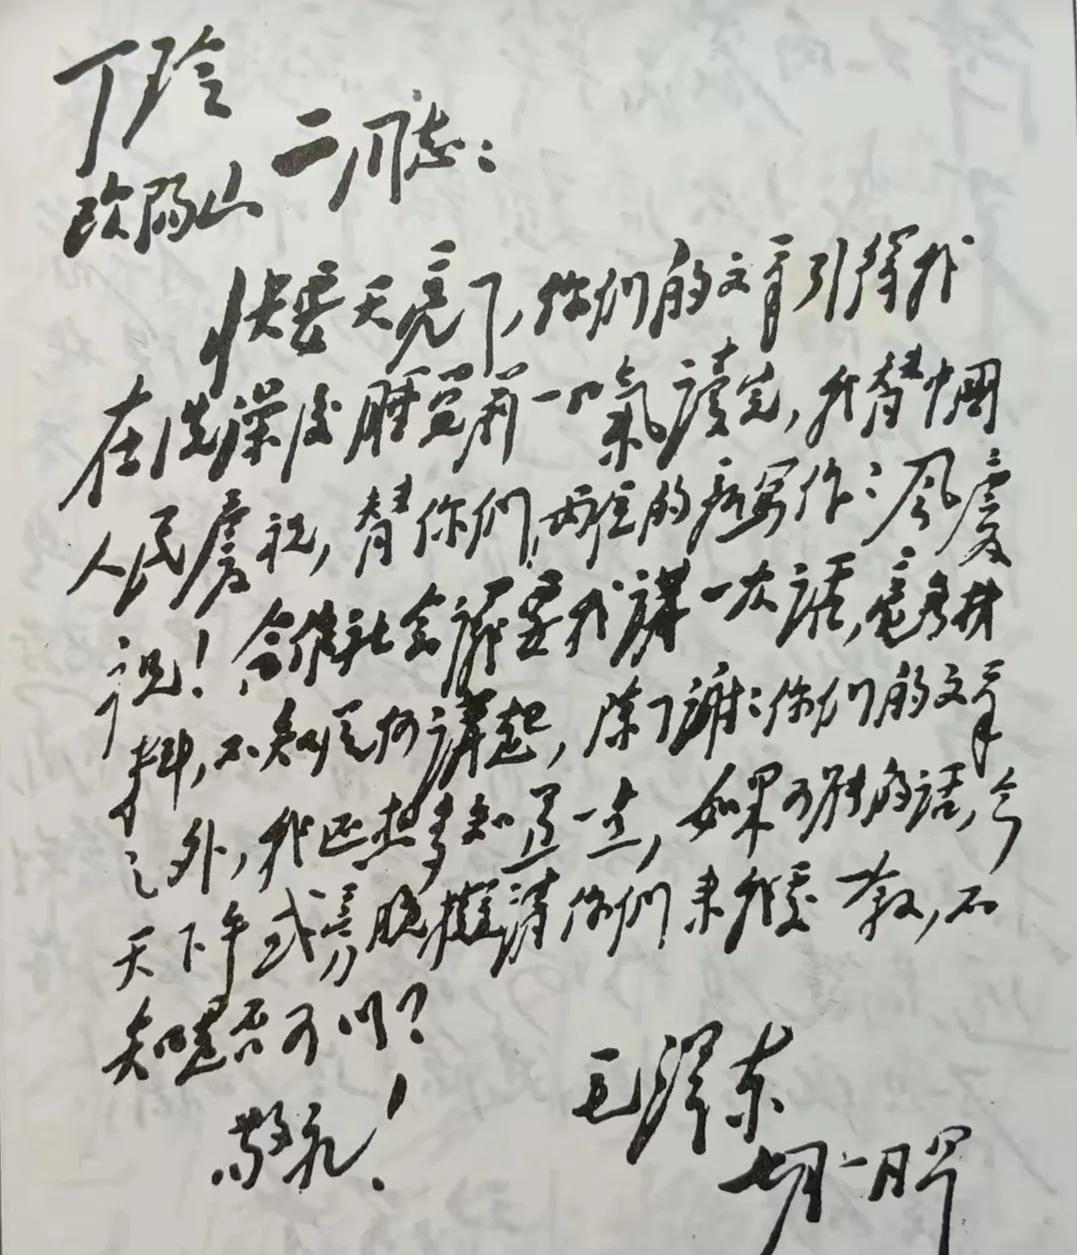 丁玲
欧阳山 二同志：
快要天亮了，你们的文章引得我
在洗澡后睡觉前一口氣讀完，我替中國
人民慶祝，替你们两位的新写作作风慶
祝！合作社会議要我講一次話，毫无材
料，不知从何講起，除了謝謝你们的文章
之外，我还想多知道一点，如果可能的話，今
天下午或傍晚擬請你们来我处一叙，不
知是否可以？
敬礼！
毛澤东
七月一日早